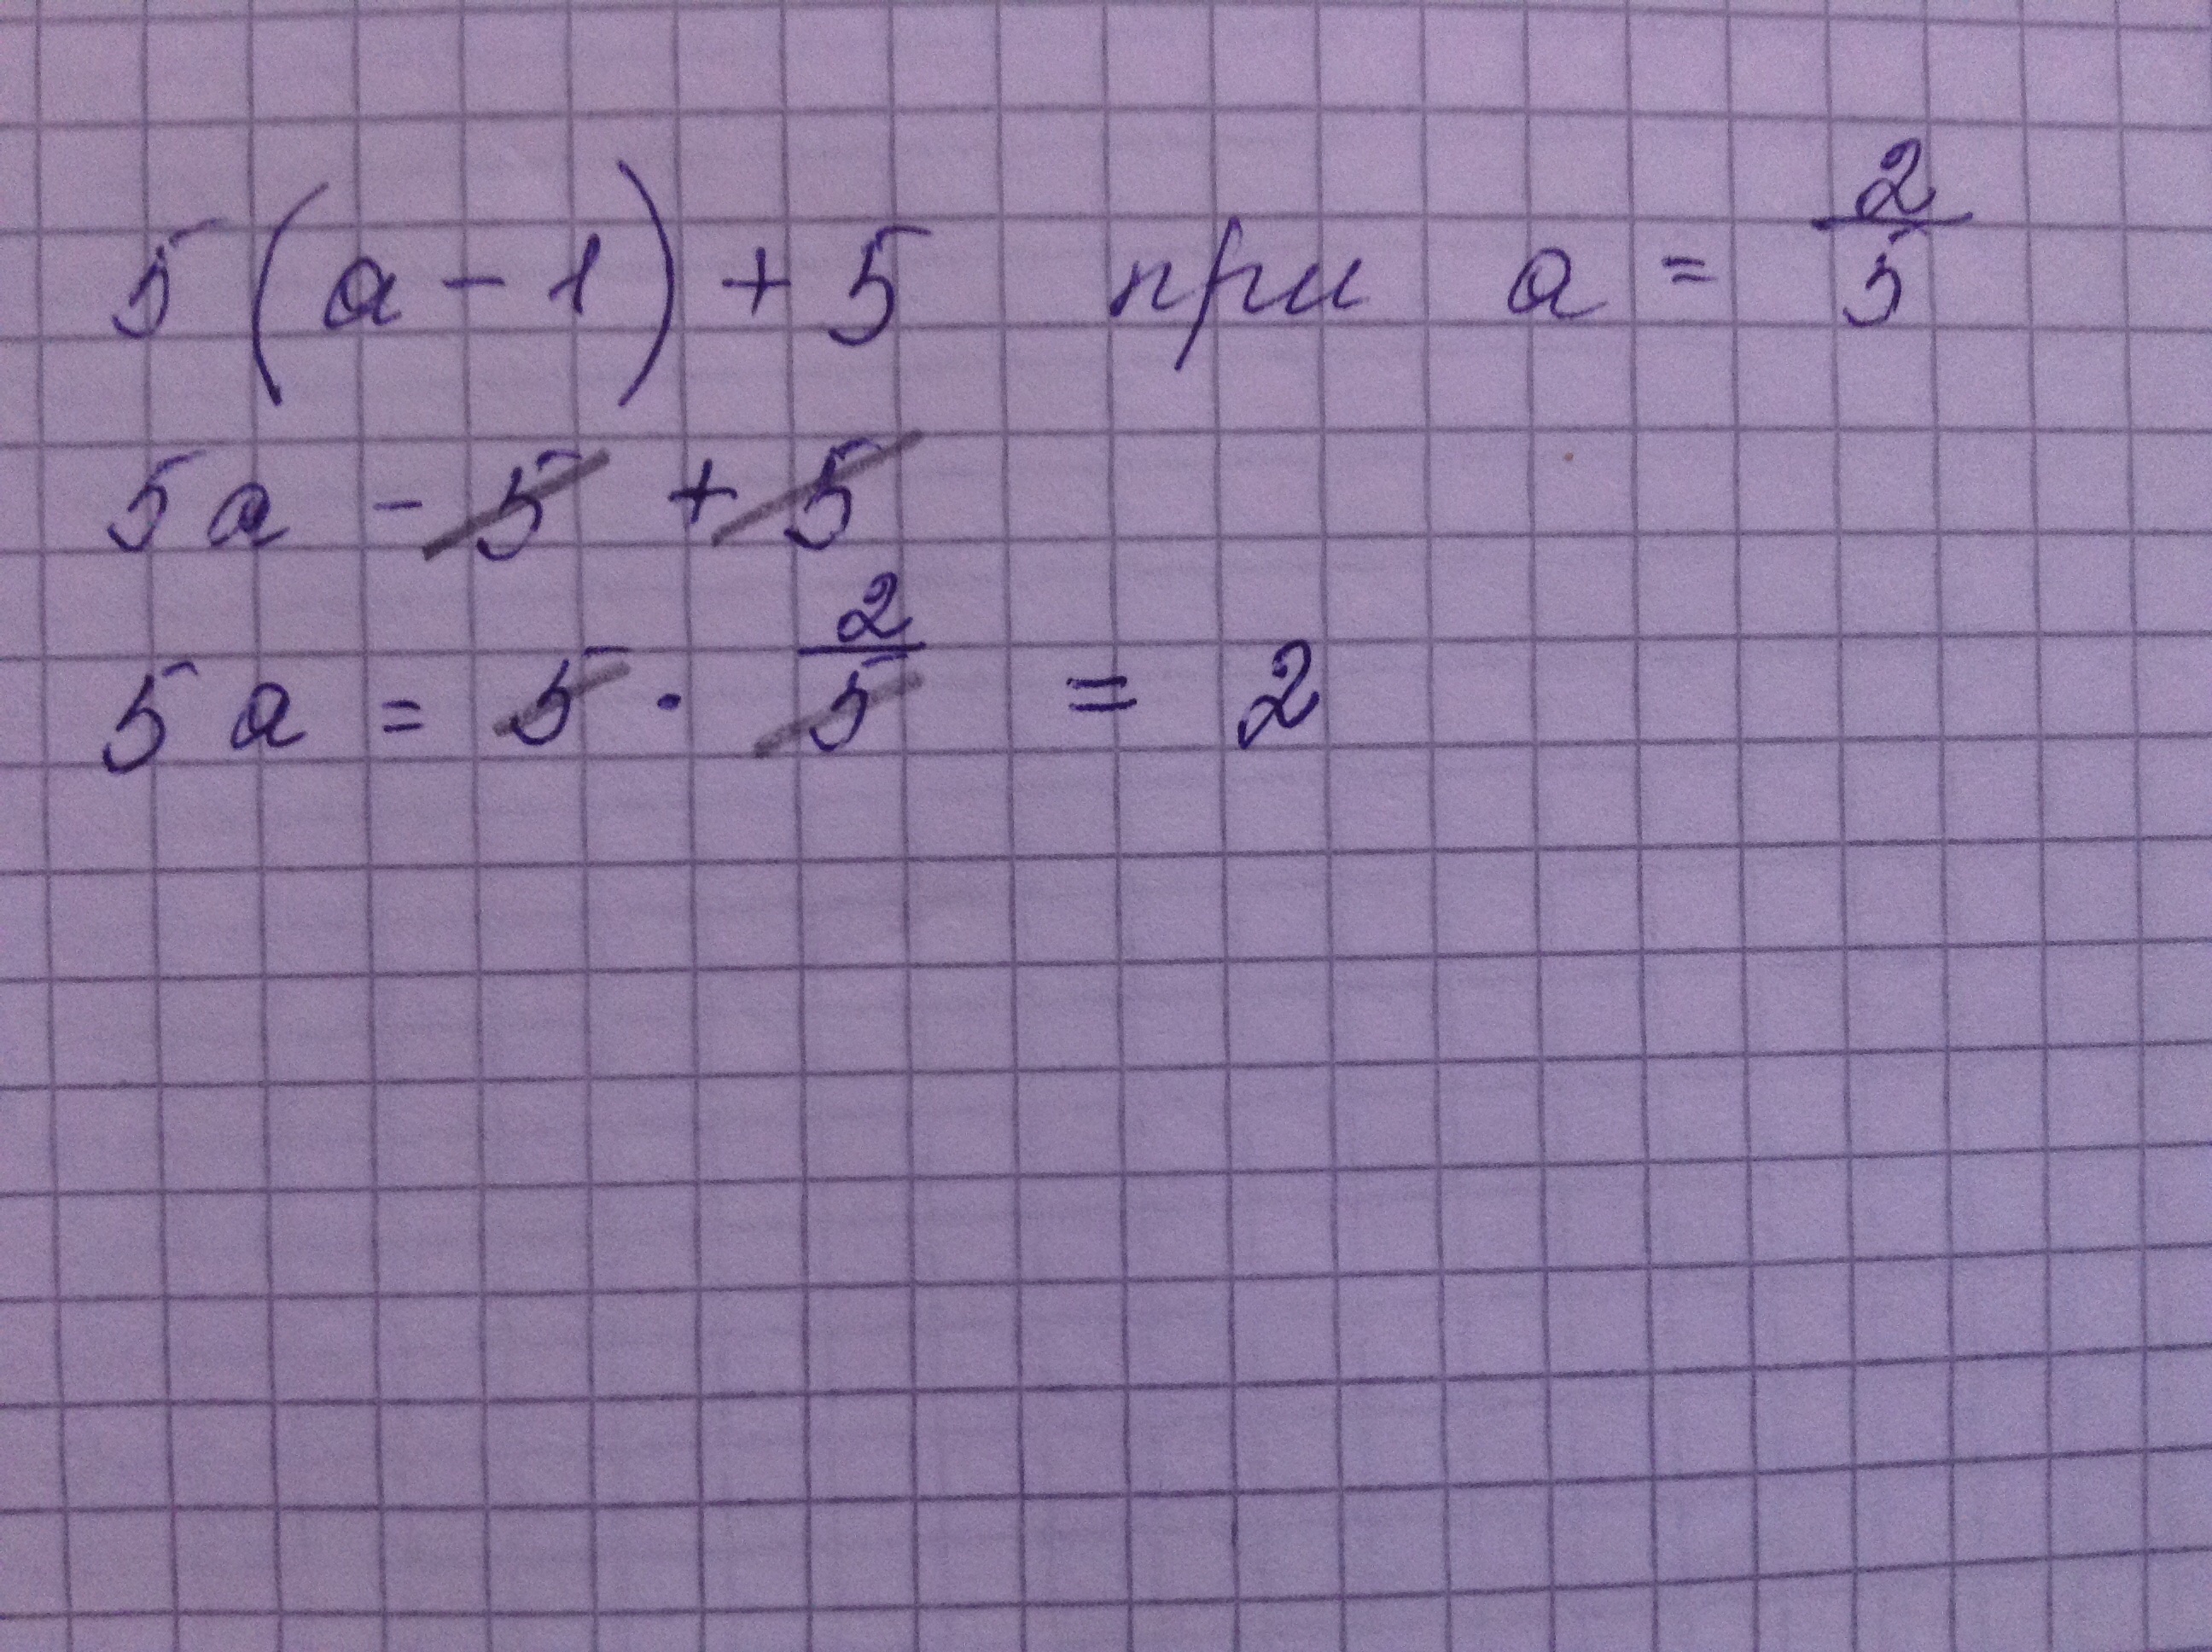 5(a-1)+5 при a = 2/5
5a - 5 + 5
5a = 5 · 2/5 = 2